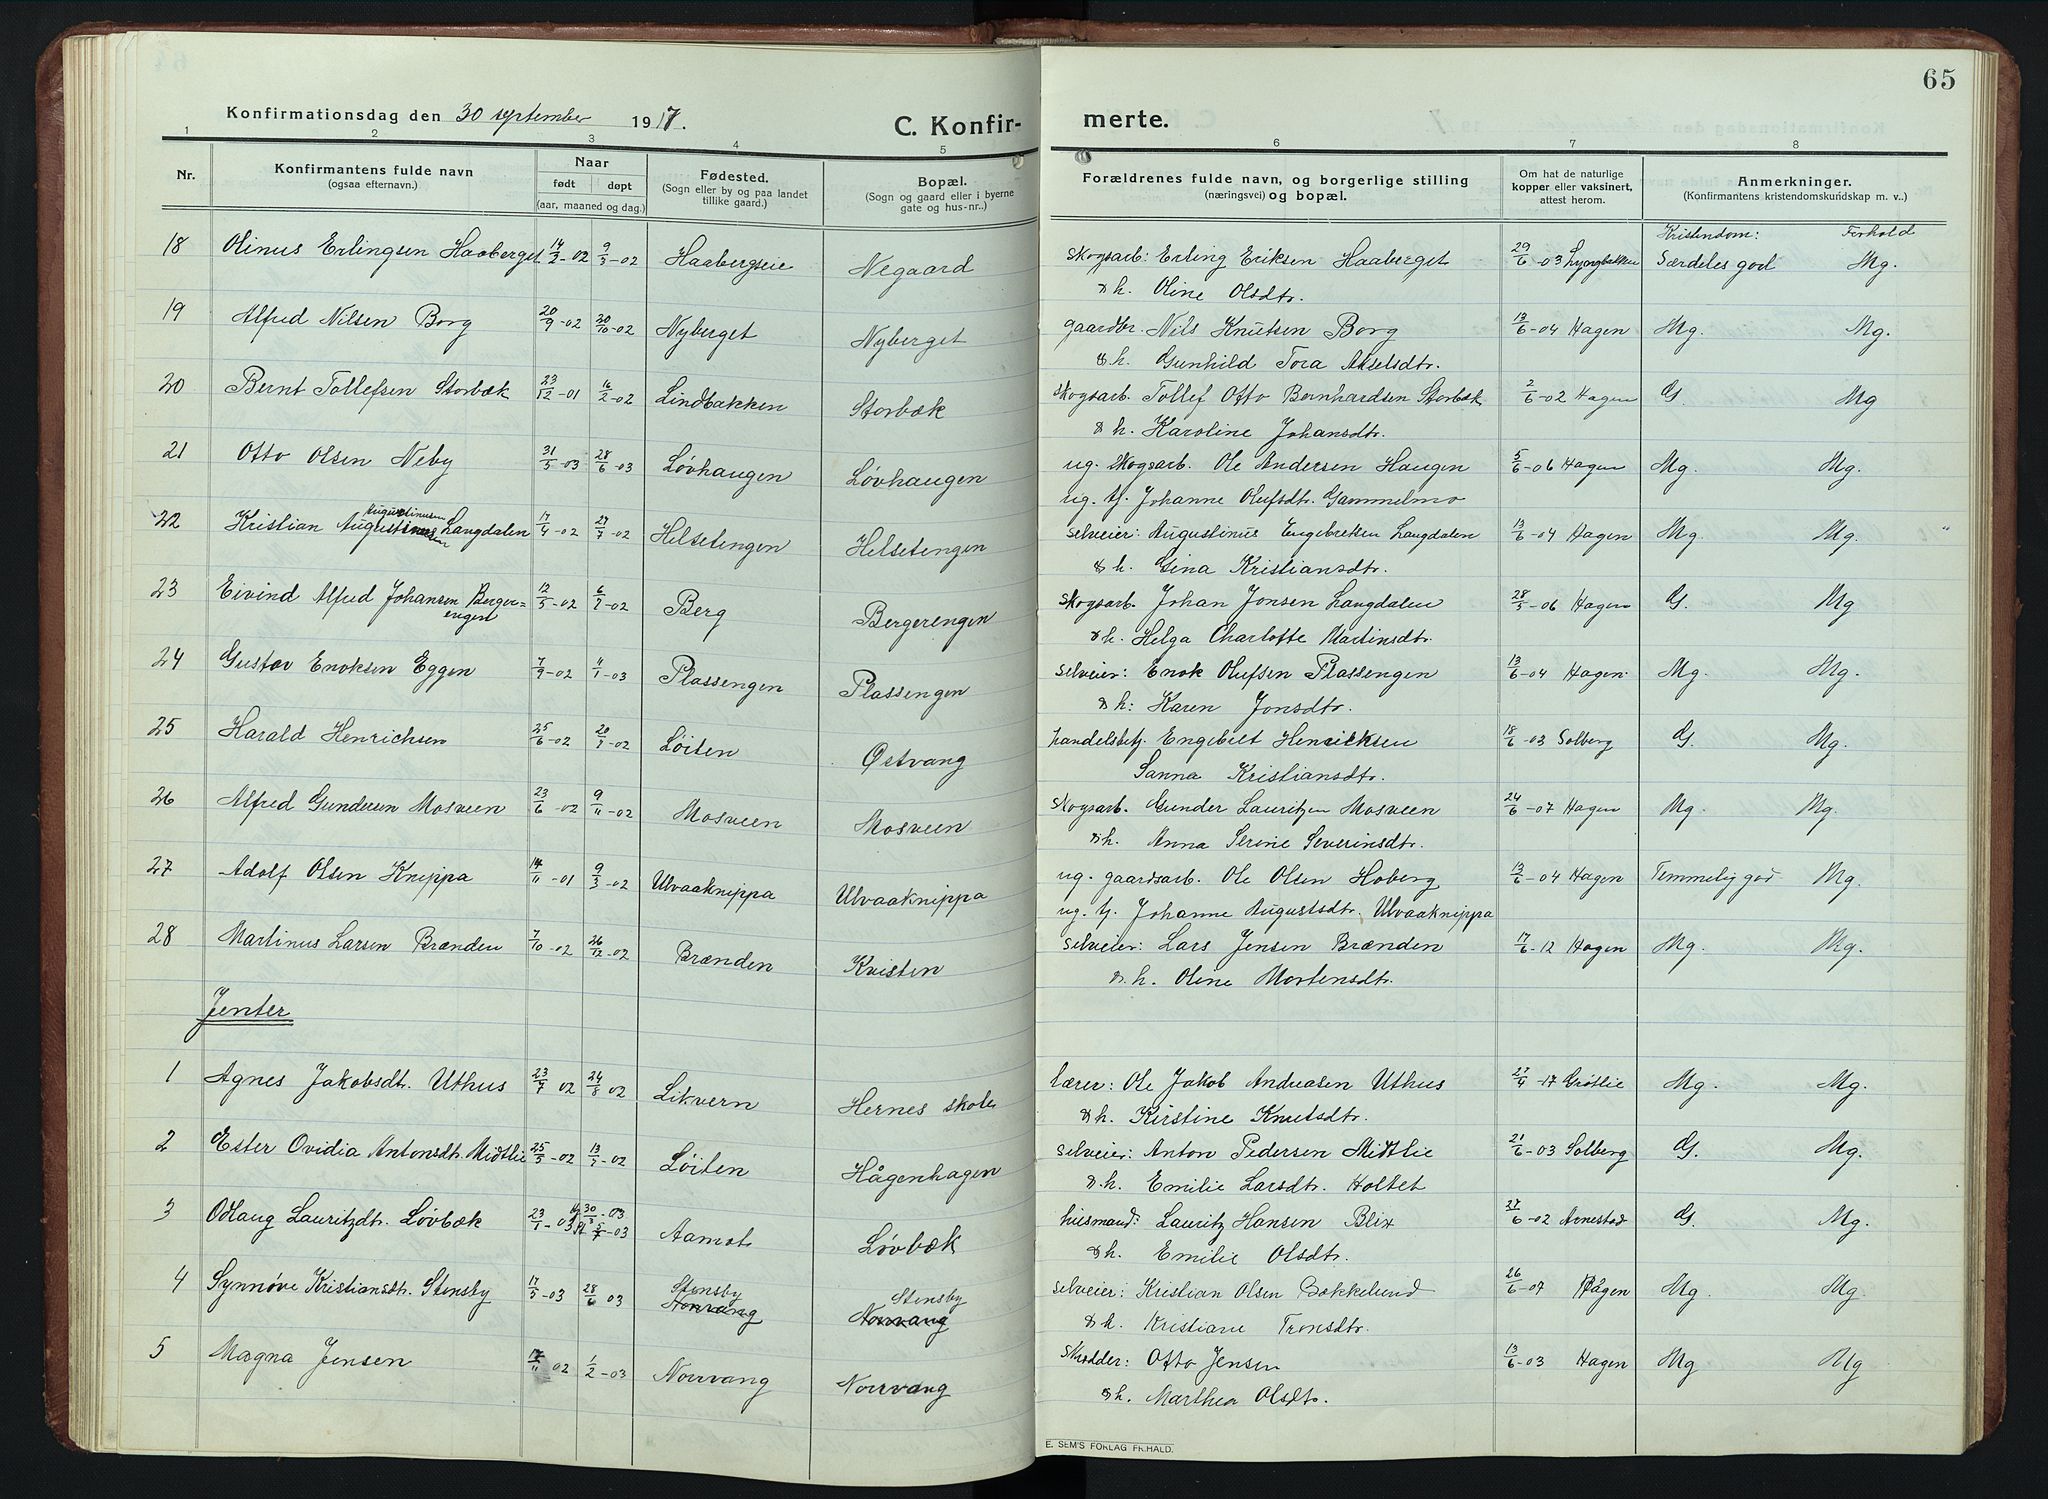 65
Konfirmationsdag den 30 september 1917.
C. Konfir-
merte.
1 2 3 4 5 6 7 8
Nr.
Konfirmantens fulde navn
(ogsaa efternavn.)
Naar
født døpt
(aar, maaned og dag.)
Fødested.
(Sogn eller by og paa landet
tillike gaard.)
Bopæl.
(Sogn og gaard eller i byerne
gate og hus-nr..)
Forældrenes fulde navn, og borgerlige stilling
(næringsvei) og bopæl.
Om hat de naturlige
kopper eller vaksinert,
attest herom.
Anmerkninger.
(Konfirmantens kristendomskundskap m. v..)
Kristendom: Forhold
18 Olinus Erlingsen Haaberget 14/2-02 9/3-02 Haabergseie Negaard Skogsarb: Erling Eriksen Haaberget 29/6-03 Lyngbakken Særdeles god Mg.
& h. Oline Olsdtr.
19 Alfred Nilsen Borg 20/9-02 30/10-02 Nyberget Nyberget gaardbr. Nils Knutsen Borg 13/6-04 Hagen Mg. Mg.
& h. Gunhild Tora Akselsdtr.
20 Bernt Tollefsen Storbæk 23/12-01 16/2-02 Lindbakken Storbæk Skogsarb. Tollef Otto Bernhardsen Storbæk 2/6-02 Hagen G. Mg
& h. Karoline Johansdtr.
21 Otto Olsen Neby 31/5-03 28/6-03 Løvhaugen Løvhaugen ug. Skogsarb. Ole Andersen Haugen 5/6-06 Hagen Mg. Mg.
ug. tj. Johanne Olufsdtr. Gammelmo
22 Kristian Augustinusen Langdalen 17/4-02 27/7-02 Helsetengen Helsetengen selveier: Augustinus Engebretsen Langdalen 13/6-04 Hagen Mg. Mg.
& h. Gina Kristiansdtr.
23 Eivind Alfred Johansen Berger= 12/5-02 6/7-02 Berg Bergerengen Skogsarb. Johan Jonsen Langdalen 28/5-06 Hagen G. Mg
engen
& h. Helga Charlotte Martinsdtr.
24 Gustav Enoksen Eggen 7/9-02 11/1-03 Plassengen Plassengen selveier: Enok Olufsen Plassengen 13/6-04 Hagen Mg. Mg.
& h: Karen Jonsdtr.
25 Harald Henrichsen 25/6-02 20/7-02 Løiten Østvang handelsbetj. Engebret Henricksen 18/6-03 Solberg G. Mg.
Sanna Kristiansdtr.
26 Alfred Gundersen Mosveen 23/6-02 9/11-02 Mosveen Mosveen Skogsarb. Gunder Lauritzen Mosveen 24/6-07 Hagen Mg. Mg.
& h. Anna Serine Severinsdtr.
27 Adolf Olsen Knippa 14/11-01 9/3-02 Ulvaaknippa Ulvaaknippa ug. gaardsarb. Ole Olsen Hoberg 13/6-04 Hagen Temmelig god Mg.
ug. tj. Johanne Augustsdtr. Ulvaaknippa
28 Martinus Larsen Brænden 7/10-02 26/12-02 Brænden Kvisten selveier: Lars Jensen Brænden 17/6-12 Hagen Mg. Mg.
& h. Oline Mortensdtr.
Jenter
1 Agnes Jakobsdt. Uthus 23/7 02 24/8 02 Likvern Hernes skole lærer: Ole Jakob Andreasen Uthus 27/4-17 Grøtlie Mg. Mg.
& h. Kirstine Knutsdtr.
2 Ester Ovidia Antonsdt. Midtlie 25/5-02 13/7-02 Løiten Hågenhagen selveier: Anton Pedersen Midtlie 21/6-03 Solberg G. Mg.
& h. Emilie Larsdtr. Holtet
3 Odlaug Lauritzdt. Løvbæk 23/1-03 30/3-03 5/7-03 Aamot Løvbæk husmand: Lauritz Hansen Blix 27/6-02 Arnestad G. Mg.
& h. Emilie Olsdtr.
4 Synnøve Kristiansdt. Stensby 17/5-03 28/6 03 Stensby Norvang Stensby Norvang selveier: Kristian Olsen Bækkelund 26/6-07 Hågen Mg. Mg
& h. Kristiane Tronsdtr.
5 Magna Jensen 17/11 02 1/2-03 Norvang Norvang Skrædder: Otto Jensen 13/6-03 Hagen Mg Mg
& h. Marthea Olsdtr.
E. SEM'S FORLAG FR.HALD.